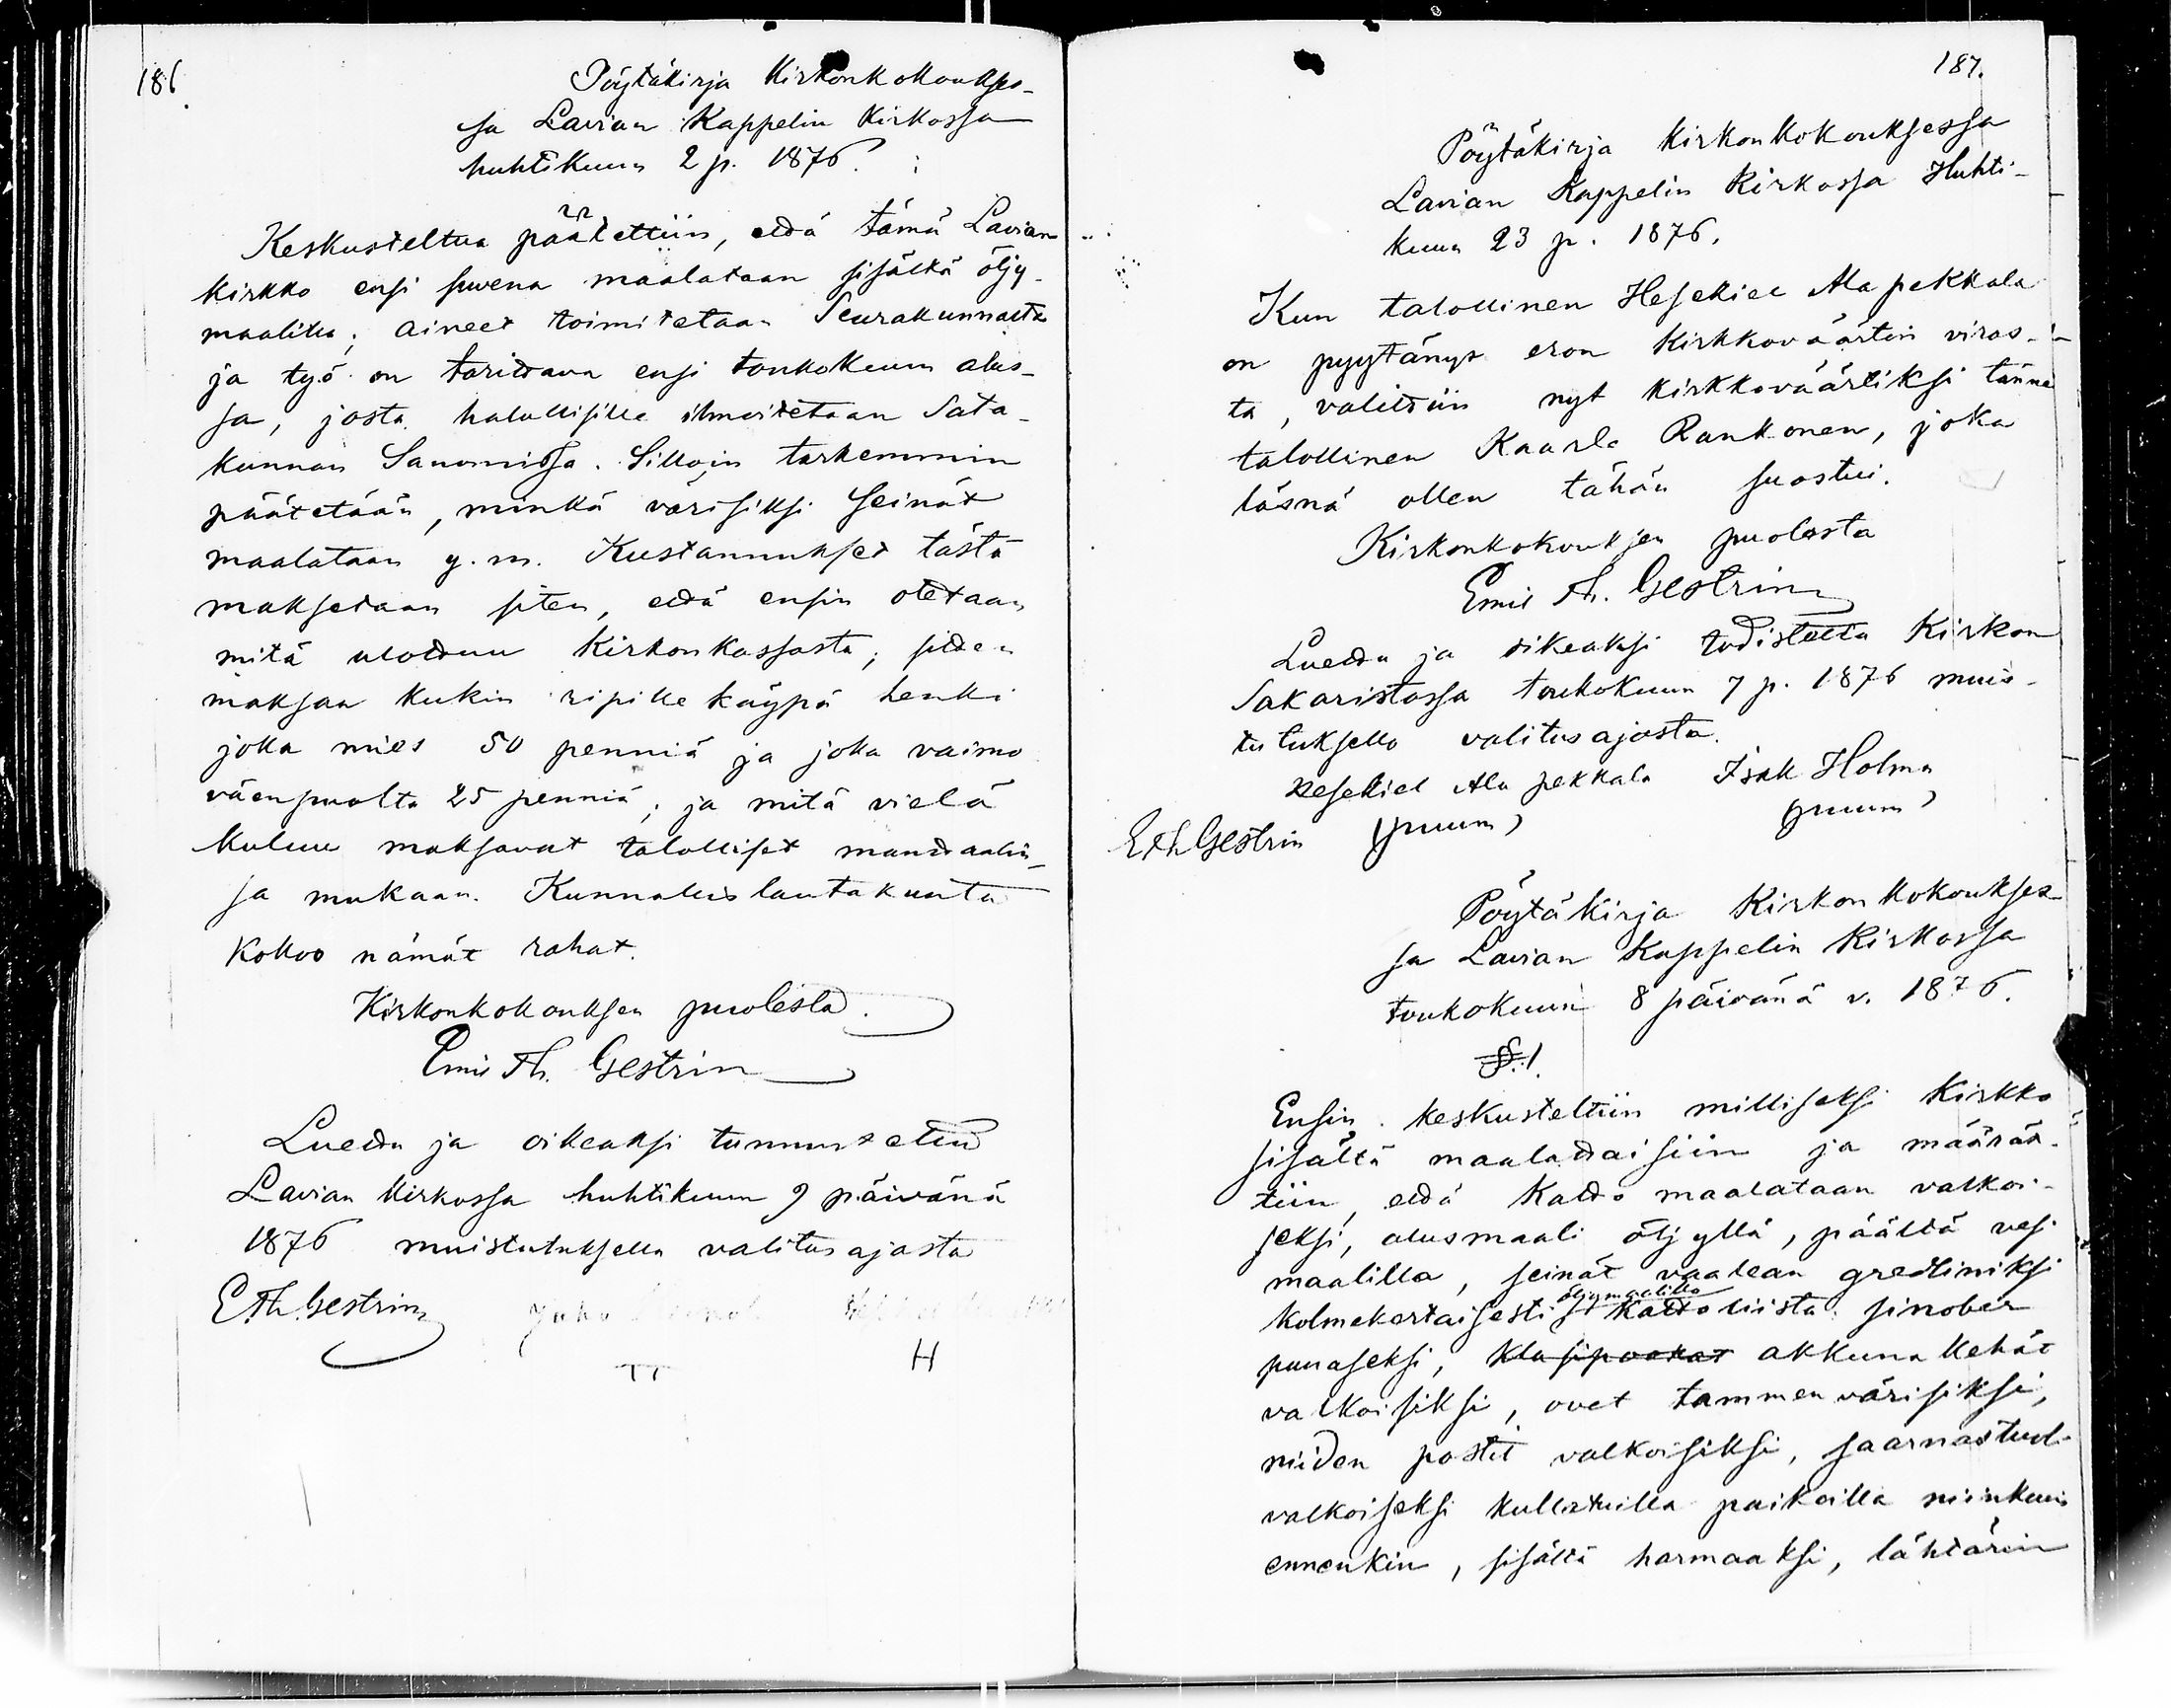 186.
Pöytäkirja Kirkonkokoukses-
sa Lavian Kappelin Kirkossa
huhtikuun 2 p. 1876.
Keskusteltua päätettiin, että tämä Lavian
kirkko ensi suvena maalataan sisältä öljy-
maalilla; aineet toimitetaan Seurakunnalta
ja työ on tarittava ensi toukokuun alus-
sa, josta halullisille ilmoitetaan Sata-
kunnan Sanomissa. Silloin tarkemmin
päätetään, minkä värisiksi seinät
maalataan y. m. Kustannukset tästä
maksetaan siten, että ensin otetaan
mitä ulottuu Kirkonkassasta; sitten
maksaa kukin ripille käypä henki
joka mies 50 penniä ja joka vaimo
väenpuolta 25 penniä; ja mitä vielä
kuluu maksavat talolliset manttaalin-
sa mukaan. Kunnallislautakunta
kokoo nämät rahat.
Kirkonkokouksen puolesta.
Emil Th. Gestrin
Luettu ja oikeaksi tunnustettu
Lavian Kirkossa huhtikuun 9 päivänä
1876 muistutuksella valitusajasta
E Th. Gestrin Juho
H
187.
Pöytäkirja Kirkonkokouksessa
Lavian Kappelin Kirkossa Huhti-
kuun 23 p. 1876.
Kun talollinen Hesekiel Alapekkala
on pyytänyt eron Kirkkoväärtin viras-
ta, valittiin nyt kirkkoväärtiksi tänne
talollinen Kaarle Rankonen, joka
läsnä ollen tähän suostui.
Kirkonkokouksen puolesta
Emil Th. Gestrin
Luettu ja oikeaksi todistettu Kirkon
Sakaristossa toukokuun 7 p. 1876 muis-
tutuksella valitusajasta.
Hesekiel Ala pekkala Isak Holma
E Th Gestrin (puum) (puum)
Pöytäkirja Kirkonkokoukses-
sa Lavian Kappelin Kirkossa
toukokuun 8 päivänä v. 1876.
§.1.
Ensin keskusteltiin milliseksi Kirkko
sisältä maalattaisiin ja määrät-
tiin, että Katto maalataan valkoi-
seksi, alusmaali öljyllä, päältä vesi
maalilla, seinät vaalean gredliniksi
öljymaalilla
kolmekertaisesti, Kattoliista sinober
punaseksi, klasipookat akkuna kehät
valkoisiksi, ovet tammen värisiksi,
niiden postit valkoisiksi, saarnastuoli
valkoiseksi kullatuilla paikoilla niinkuin
ennenkin, sisältä harmaaksi, lähtärin